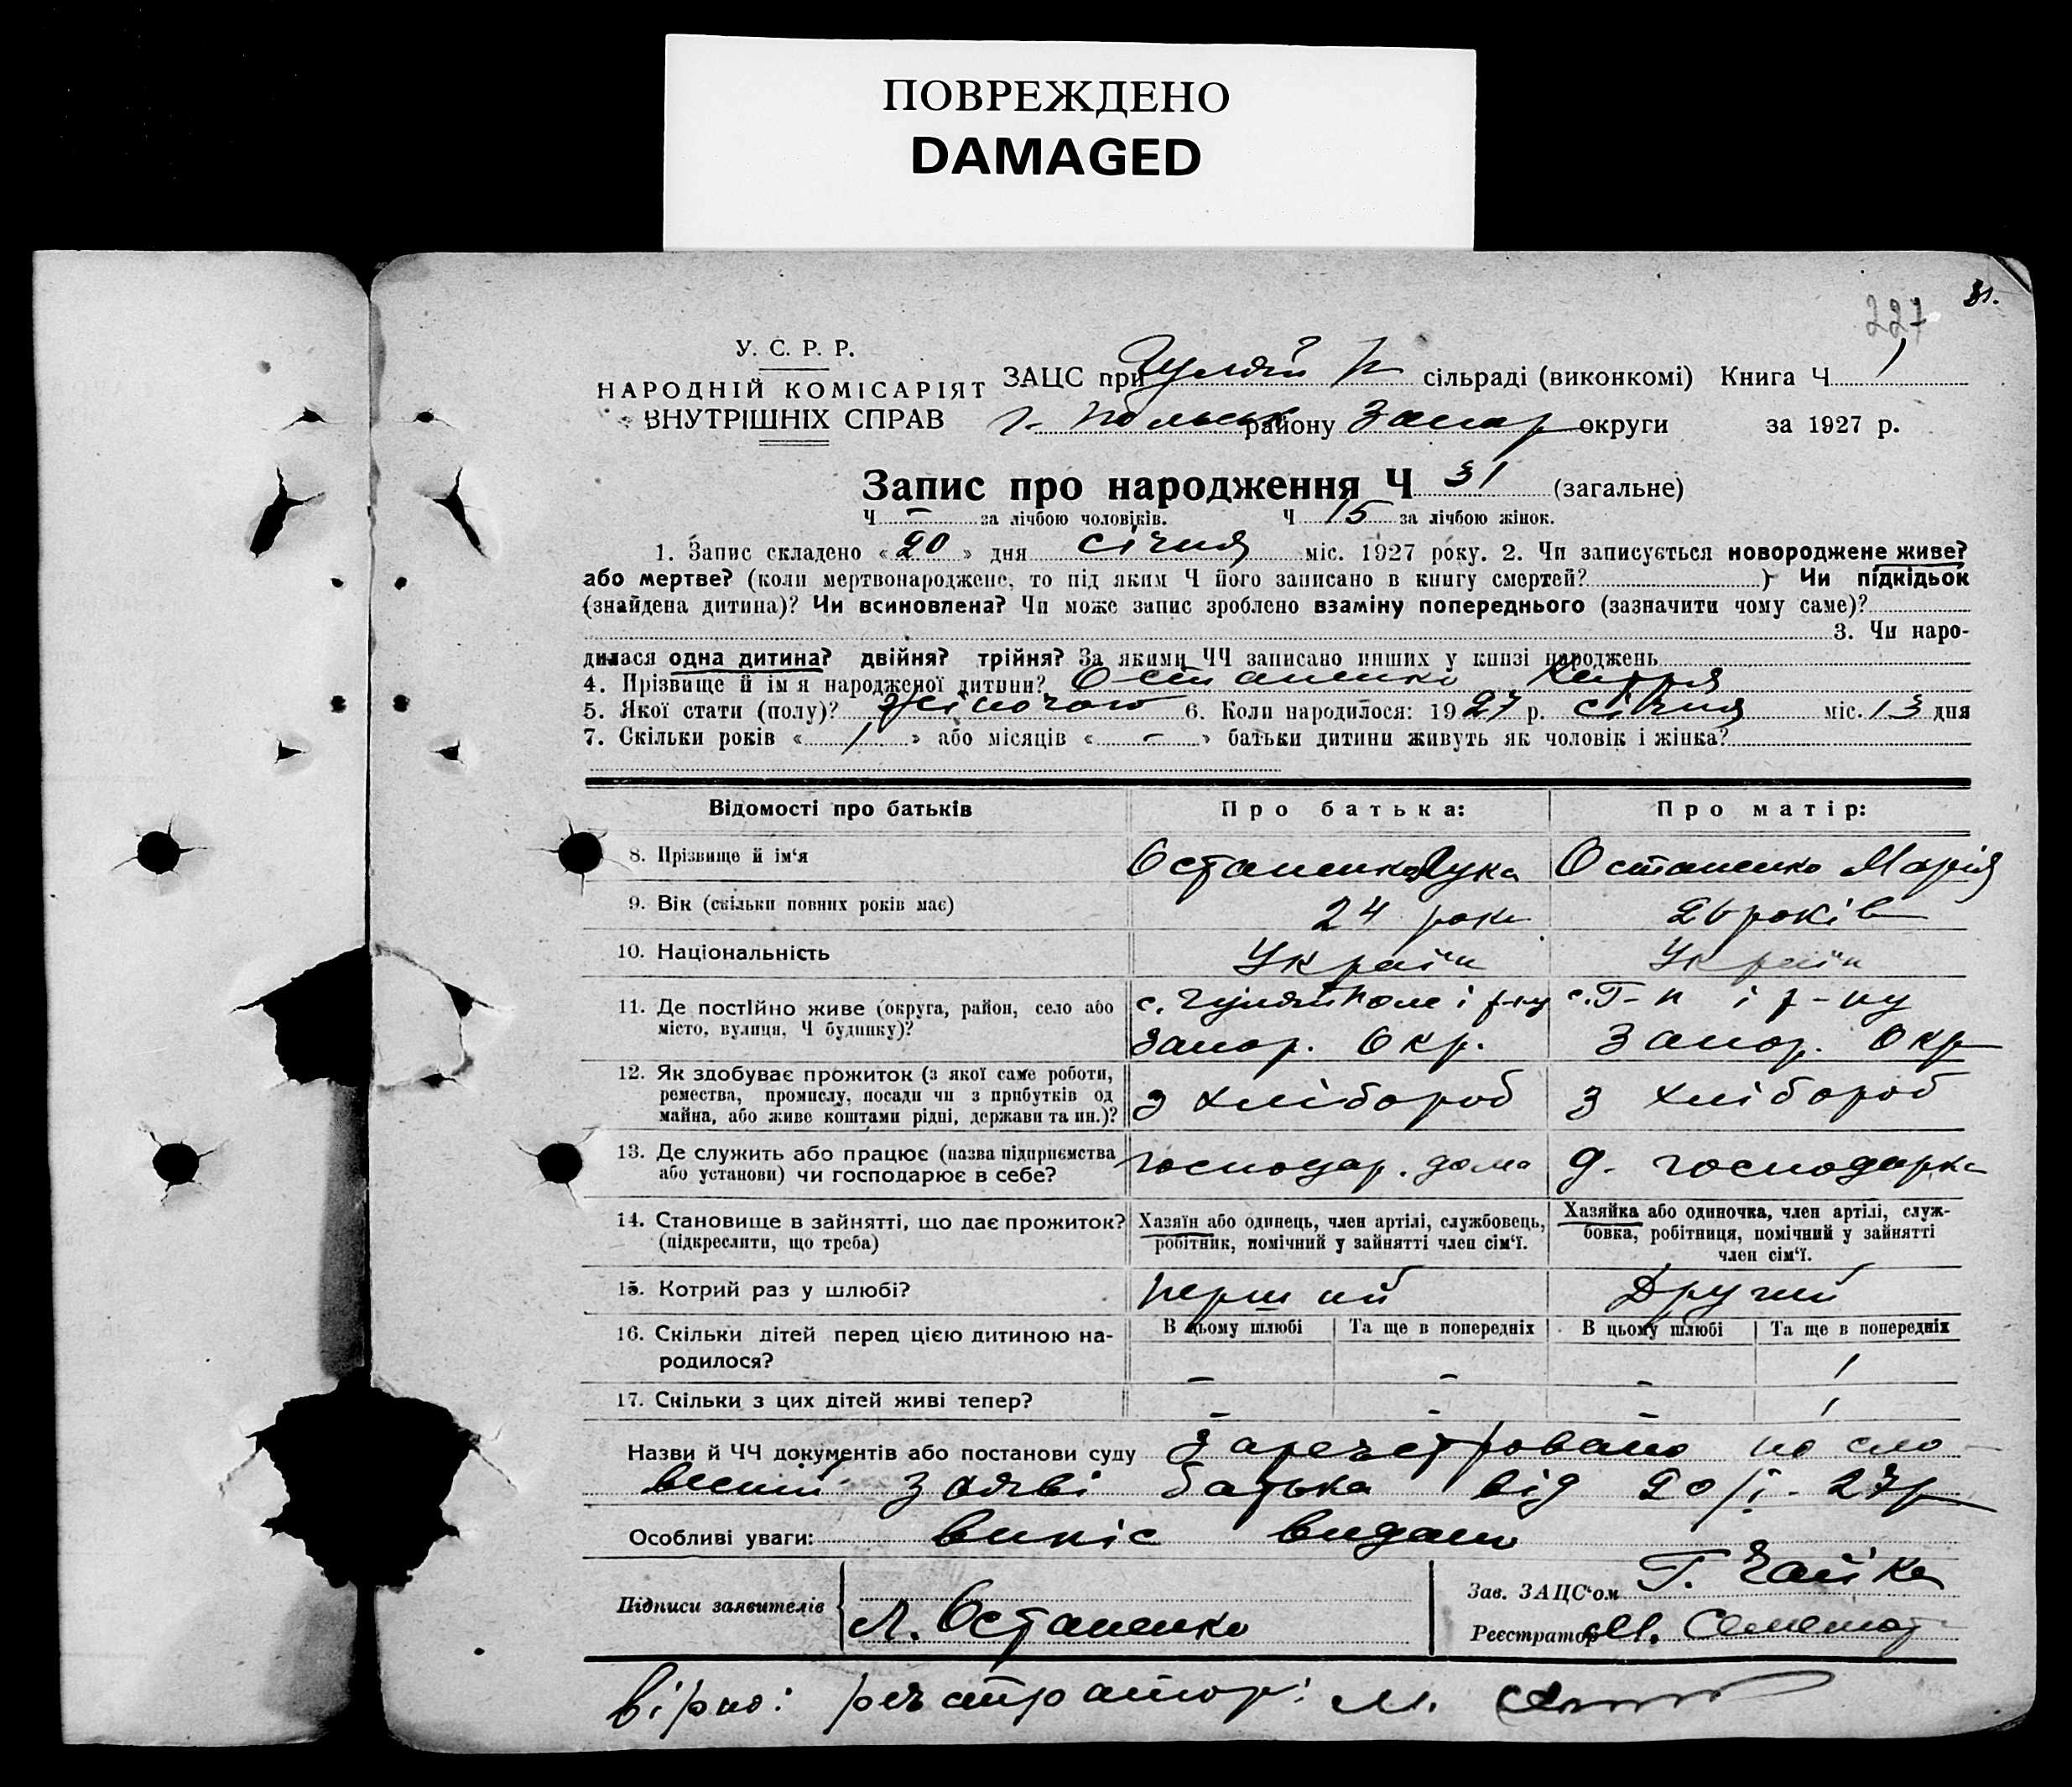 ПОВРЕЖДЕНО
DAMAGED
31.
227
У. С. Р. Р.
НАРОДНІЙ КОМІСАРІЯТ
ВНУТРІШНІХ СПРАВ
ЗАЦС при Гуляй п сільраді (виконкомі) Книга Ч 1
Г. Польськ району Запор округи за 1927 р.
Запис про народження Ч 31 (загальне)
Ч - за лічбою чоловіків. Ч 15 за лічбою жінок.
1. Запис складено « 20 » дня січня міс. 1927 року. 2. Чи записується новороджене живе?
або мертве? (коли мертвонароджене, то під яким Ч його записано в книгу смертей? ) Чи підкідьок
(знайдена дитина)? Чи всиновлена? Чи може запис зроблено взаміну попереднього (зазначити чому саме)?
3. Чи наро-
дилася одна дитина? двійня? трійня? За якими ЧЧ записано инших у книзі народжень
4. Прізвище й ім'я народженої дитини? Остапенко Катря
5. Якої стати (полу)? жіночої 6. Коли народилося: 1927 р. січня міс. 13 дня
7. Скільки років « 1 » або місяців « - » батьки дитини живуть як чоловік і жінка?
Відомості про батьків Про батька: Про матір:
8. Прізвище й ім'я Остапенко Лука Остапенко Марія
9. Вік (скільки повних років має) 24 роки 26 років
10. Національність Україн Україн
11. Де постійно живе (округа, район, село або с. Гуляйполе і р-ну с. Г-п і р-ну
місто, вулиця, Ч будинку)? Запор. Окр. Запор. Окр
12. Як здобуває прожиток (з якої саме роботи,
ремества, промислу, посади чи з прибутків од з хлібороб з хлібороб
майна, або живе коштами рідні, держави та ин.)?
13. Де служить або працює (назва підприємства господар. дома д. господарка
або установи) чи господарює в себе?
14. Становище в зайнятті, що дає прожиток? Хазяїн або одинець, член артілі, службовець, Хазяйка або одиночка, член артілі, служ-
(підкреслити, що треба) робітник, помічний у зайнятті член сім'ї. бовка, робітниця, помічний у зайнятті
член сім'ї.
15. Котрий раз у шлюбі? перший Другий
16. Скільки дітей перед цією дитиною на- В цьому шлюбі Та ще в попередніх В цьому шлюбі Та ще в попередніх
родилося? - - - 1
17. Скільки з цих дітей живі тепер? - - - 1
Назви й ЧЧ документів або постанови суду Зареєстровано по сло-
весній заяві батька від 20/І-27р
Особливі уваги: випіс видано
Підписи заявителів Л. Остапенко
Зав. ЗАЦС'ом Г. Чайка
Реєстратор М.
вірно: реєстратор: М.